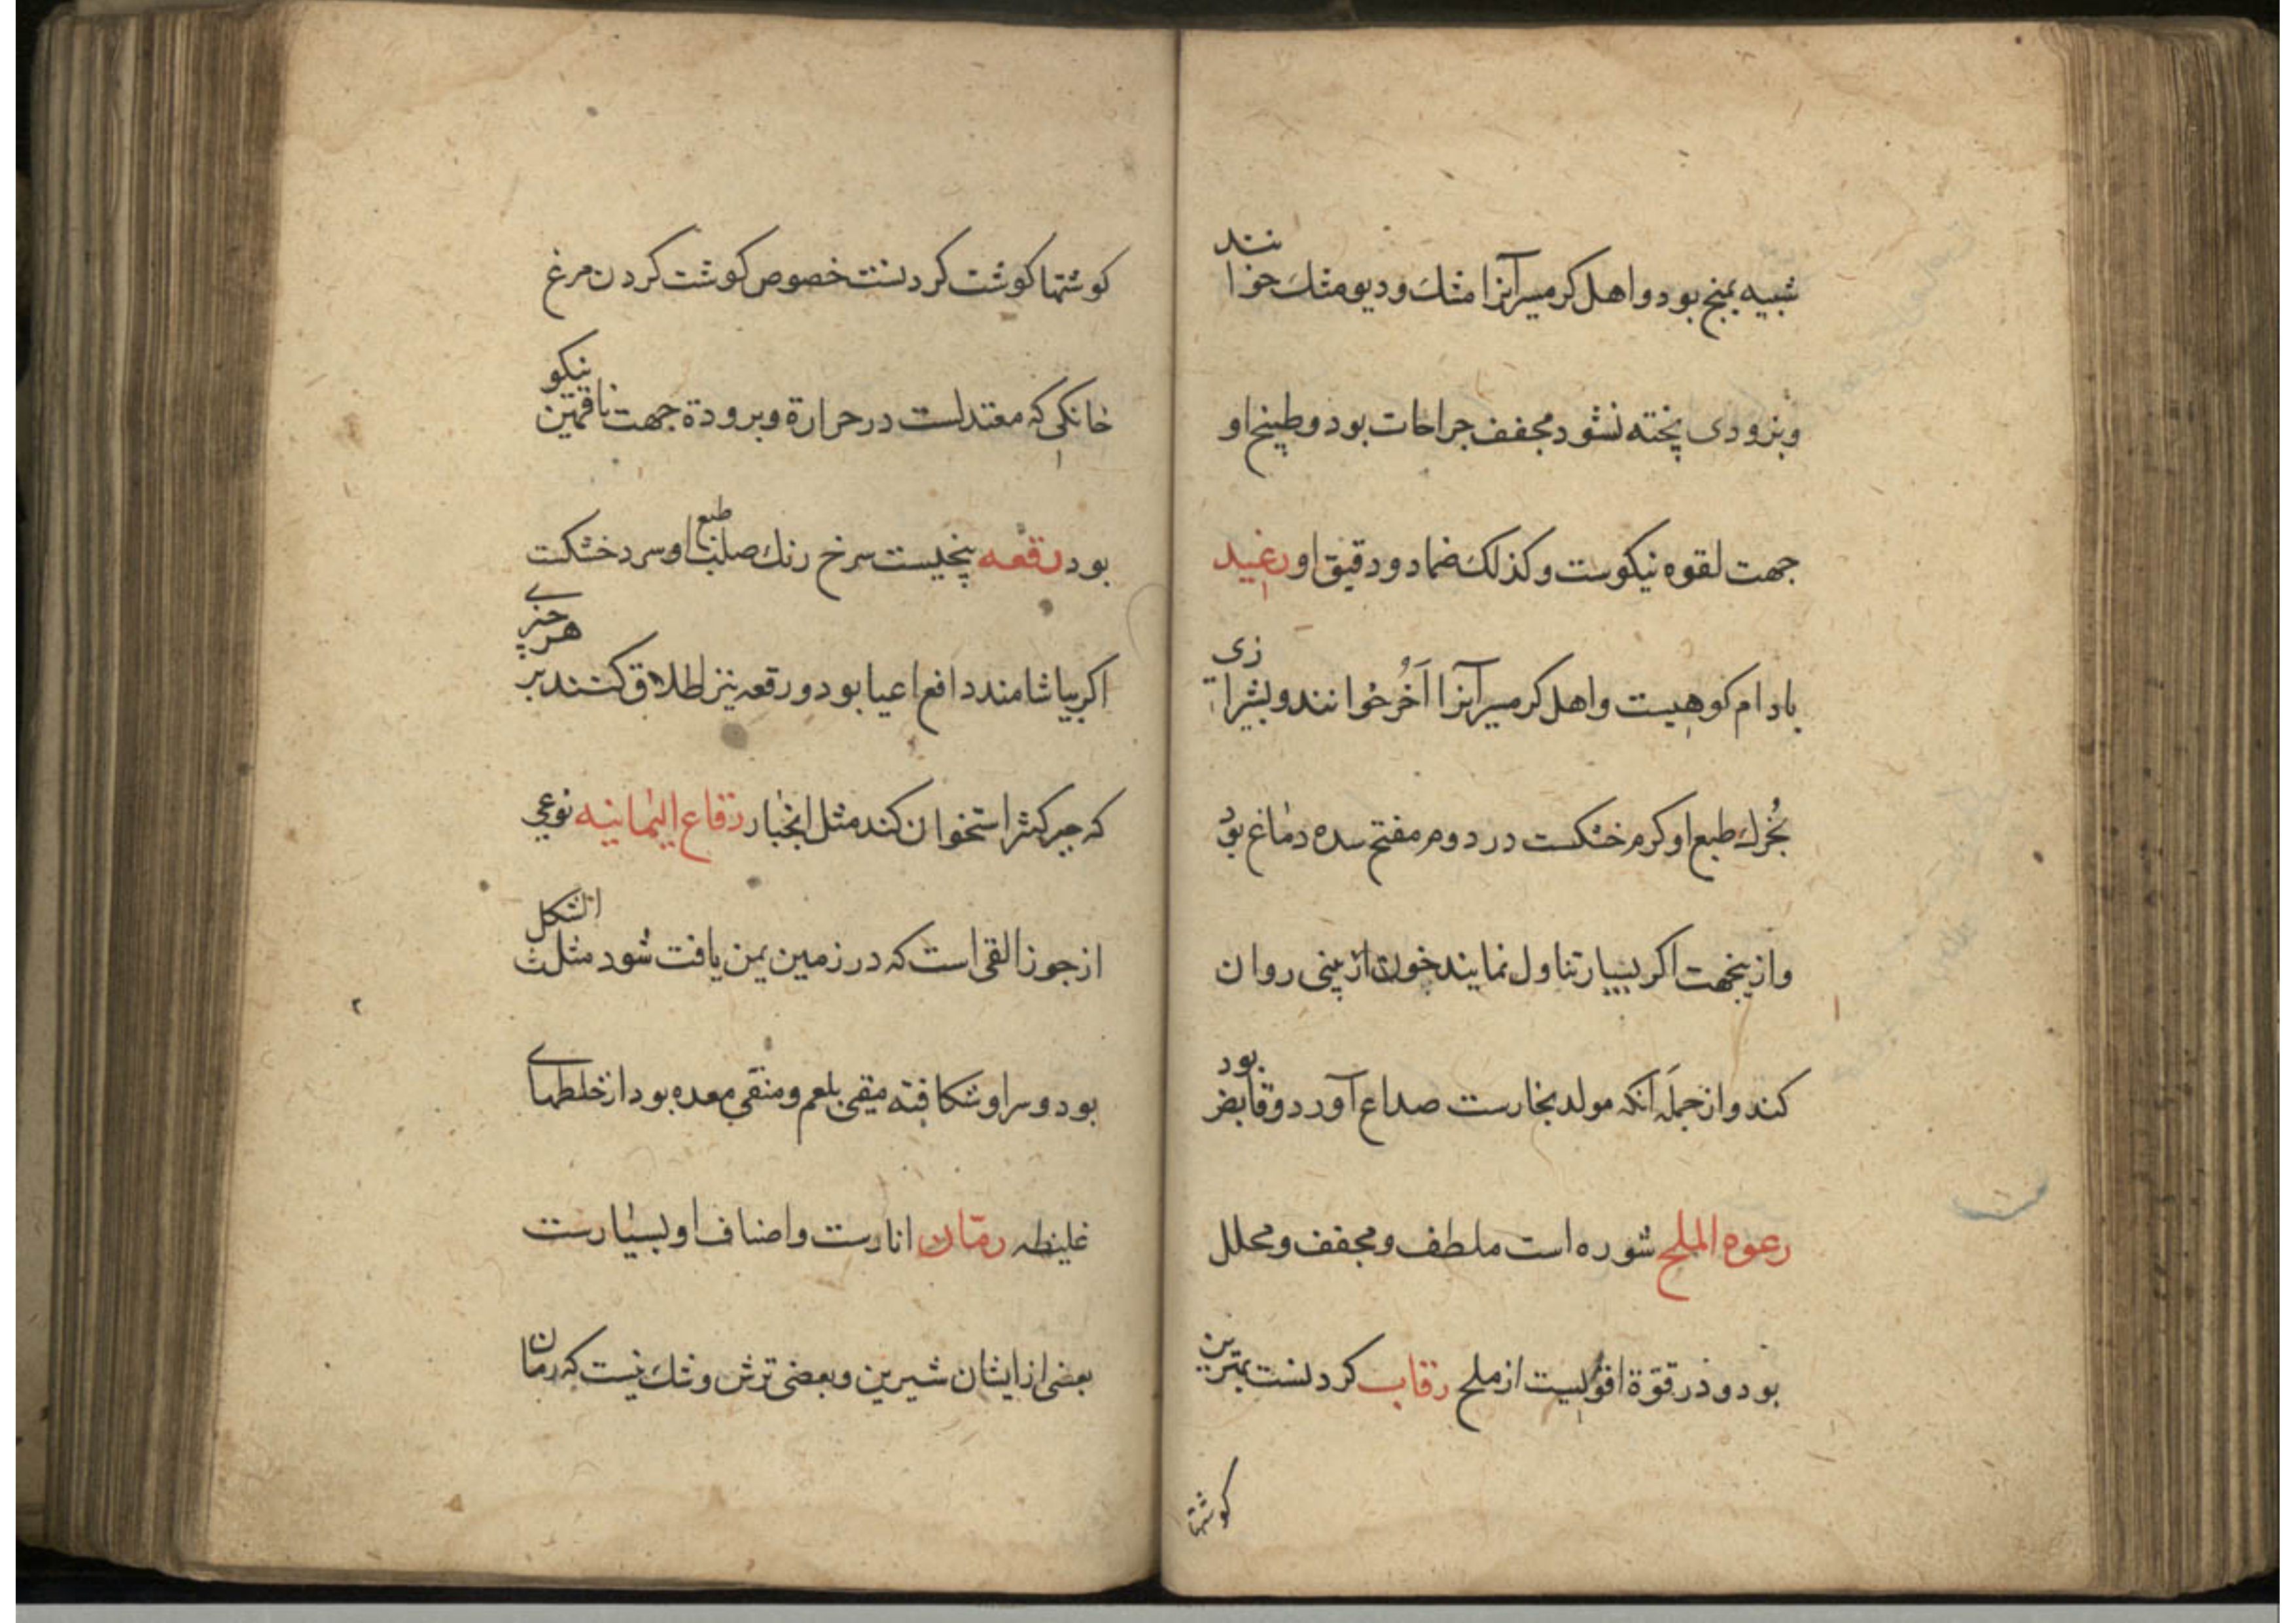 شبیه بمنج بود و اهل کرمسیر آنرا مثک و دیو مثک خوانند
و بزودی پخته نشود مجفف جراحات بود و طبیخ او
جهت لقوه نیکوست و کذلک ضماد و دقیق او رعید
بادام کوهیست و اهل کرمسیر آنرا اَخُرخوانند و بشیرازی
بُخرک طبع او کرم خشکست در دوم مفتح سده دماغ بود
و ازینجهت اکر بسیار تناول نمایند خون از بینی روان
کند و از جمله آنکه مولد بخارست صداع آورد و قابض بود
رعوه الملح شوره است ملطف و مجفف و محلل
بود و در قوّة اقویست از ملح رقاب کردنست بهترین
کوشتها
کوشتها کوشت کردنست خصوص کوشت کردن مرغ
خانکی که معتدلست در حرارة و برودة جهت ناقهین نیکو
بود رقعه بیخیست سرخ رنک صلب طبع او سرد خشکت
اکر بیاشامند دافع اعیا بود و رقعه نیز اطلاق کنند بر هر چیزی
که جبر کثر استخوان کند مثل انجبار رقاع الیمانیه نوعی
از جوز القی است که در زمین یمن یافت شود مثلث الشکل
بود و سر او شکافته مقی بلغم و منقی معده بود از خلطهای
غلیظه رمّان انارست و اصناف او بسیارست
بعضی از ایشان شیرین و بعضی ترش و شک نیست که رمان